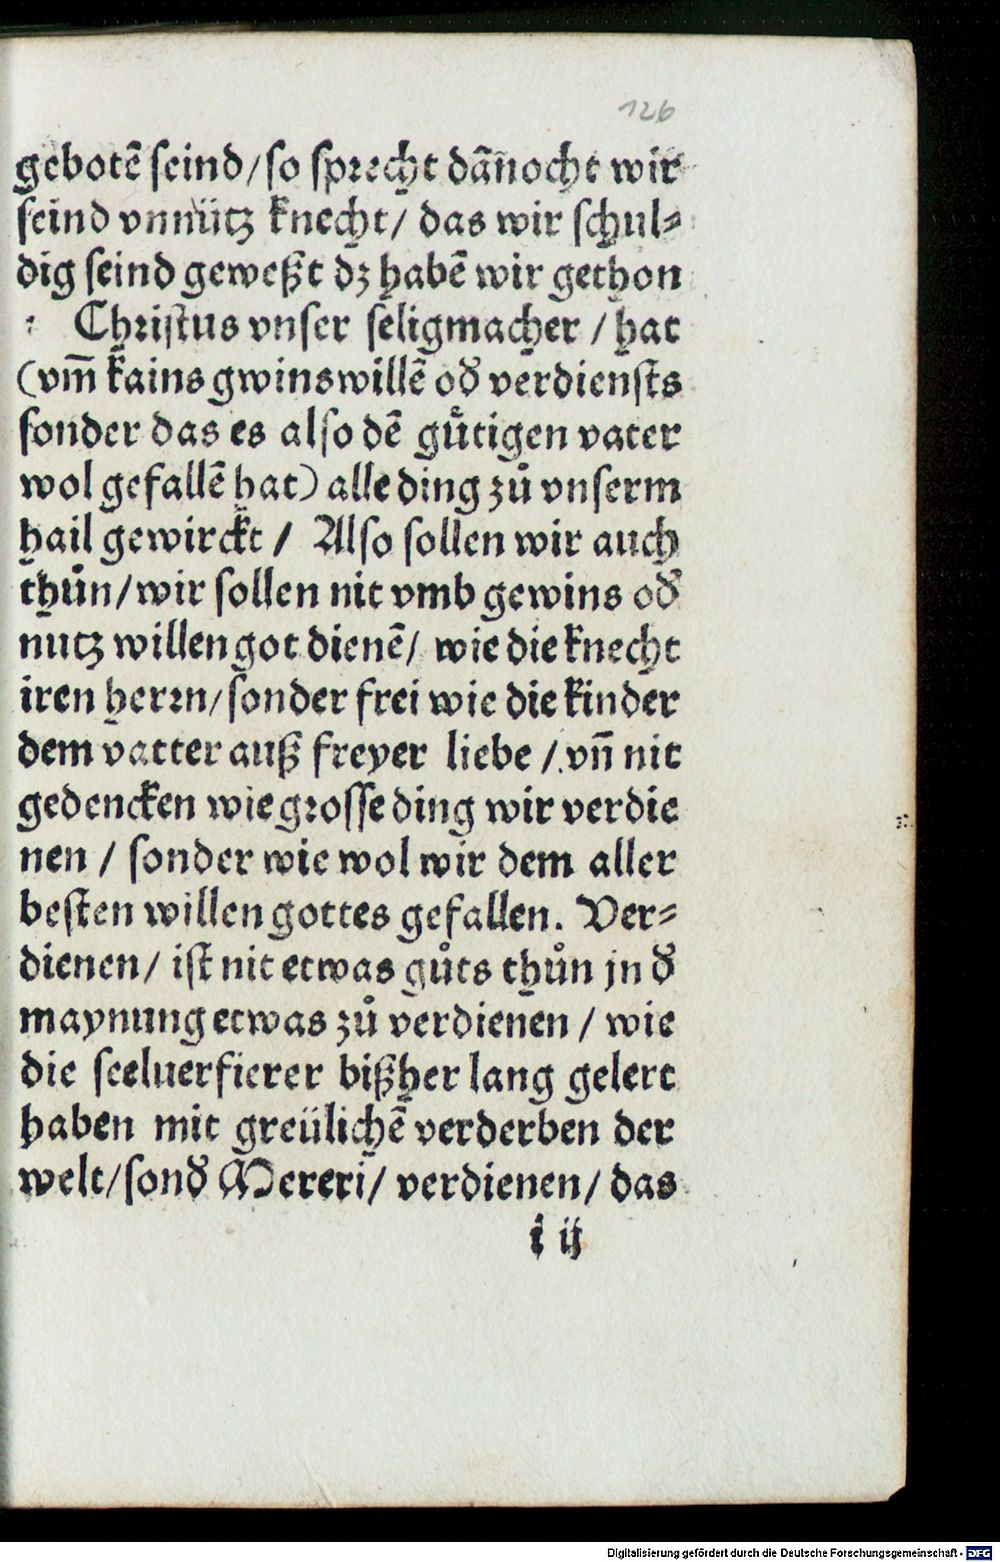 126
gebotē seind/so sprecht dān̄ocht wir
seind vnnütz knecht/ das wir schul⸗
dig seind geweßt dz habē wir gethon
: Christus vnser seligmacher / hat
(vm̄ kains gwinswillē oď verdiensts
sonder das es also dē gůtigen vater
wol gefallē hat) alle ding zů vnserm
hail gewirckt / Also sollen wir auch
thůn/wir sollen nit vmb gewins oď
nutz willen got dienē/ wie die knecht
iren herrn/sonder frei wie die kinder
dem vatter auß freyer liebe / vn̄ nit
gedencken wie grosse ding wir verdie
nen / sonder wie wol wir dem aller
besten willen gottes gefallen. Ver⸗
dienen/ ist nit etwas gůts thůn jn ď
maynung etwas zů verdienen / wie
die seeluerfierer bißher lang gelert
haben mit greülichē verderben der
welt/sonď Mereri/ verdienen/ das
i ij
Digitalisierung gefördert durch die Deutsche Forschungsgemeinschaft - DFG